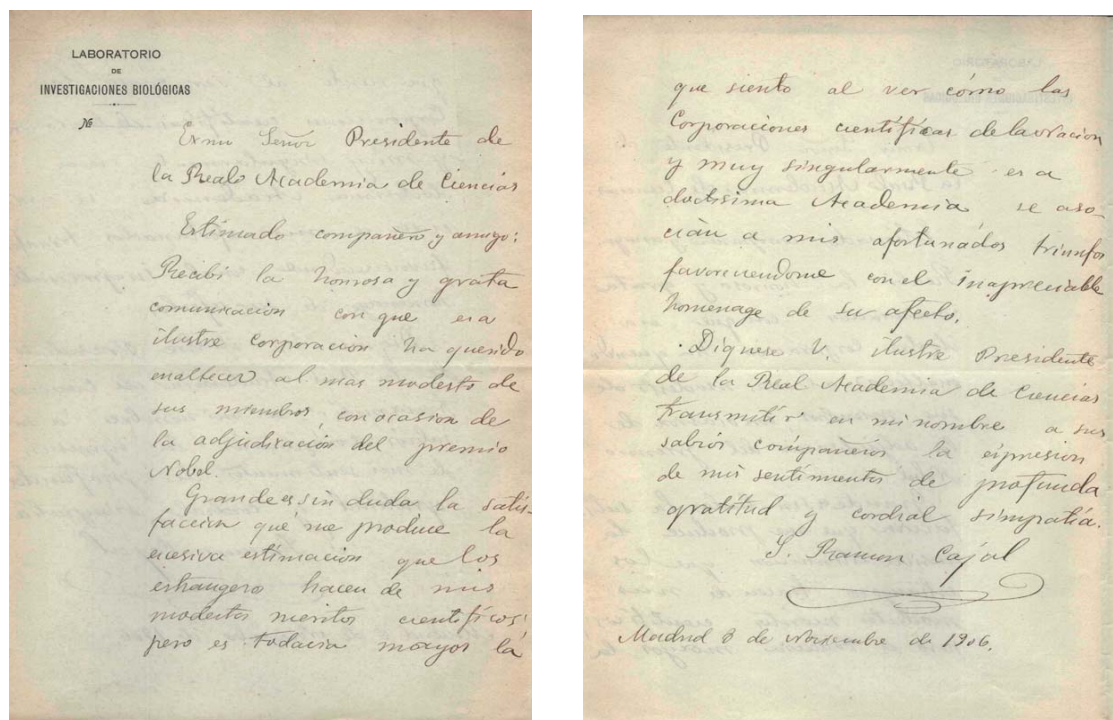 LABORATORIO
DE
INVESTIGACIONES BIOLÓGICAS
Nº
Exmo Señor Presidente de
la Real Academia de Ciencias
Estimado compañero y amigo:
Recibi la honrosa y grata
comunicacion con que esa
ilustre Corporación ha querido
enaltecer al mas modesto de
sus miembros con ocasion de
la adjudicación del premio
Nobel.
Grande es sin duda la satis-
faccion que me produce la
excesiva estimación que los
extrangero hacen de mis
modestos meritos cientificos;
pero es todavia mayor la
que siento al ver cómo las
Corporaciones científicas de la nacion
y muy singularmente esa
doctisima Academia se aso-
cian a mis afortunados triunfos
favoreciendome con el inapreciable
homenage de su afecto.
Dignese V. ilustre Presidente
de la Real Academia de Ciencias
transmitir en mi nombre a sus
sabios compañeros la expresion
de mis sentimientos de profunda
gratitud y cordial simpatía.
S. Ramon Cajal
Madrid 8 de Noviembre de 1906.